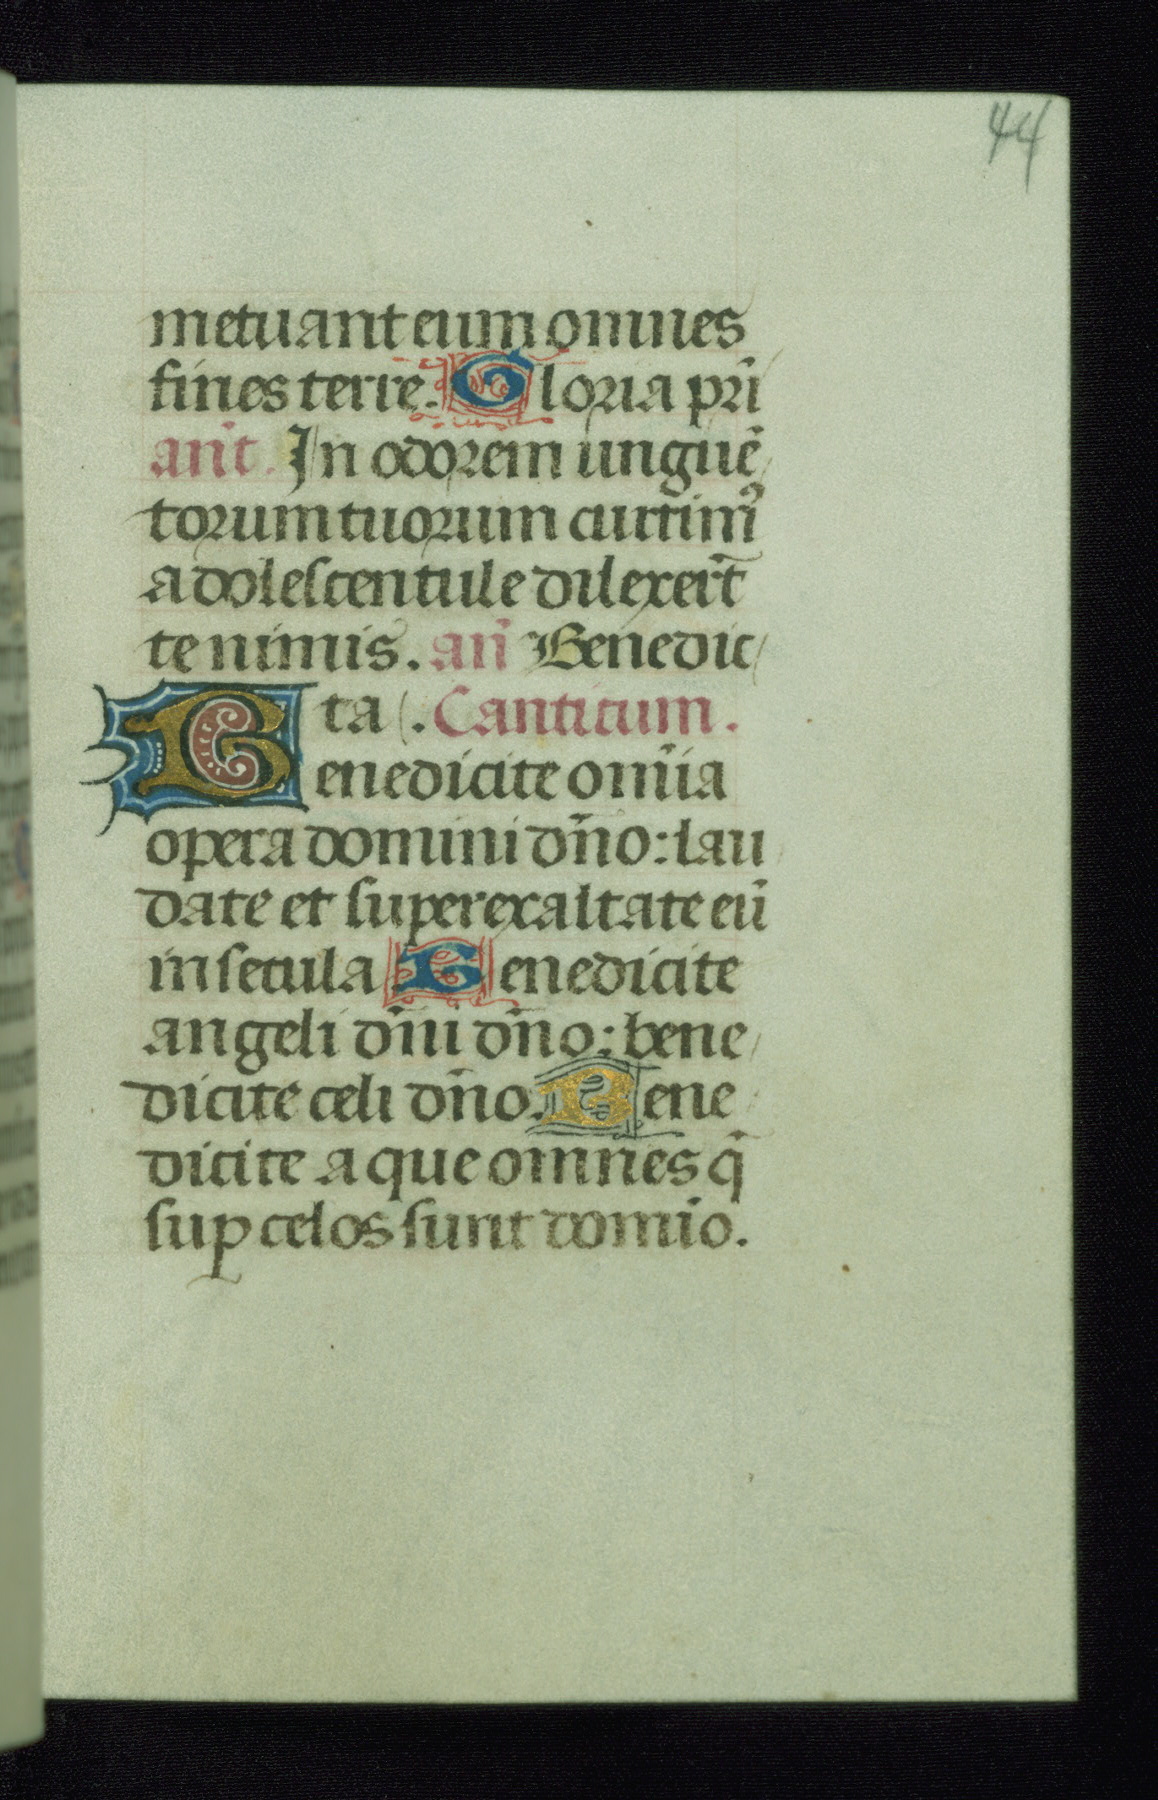 44
metuant eum omnes
fines terre. Gloria pr̃i
añt. In odorem unguẽ
torum tuorum currim᷒
adolescentule dilexer̃t
te nimis. añ Benedic
ta. Canticum.
Benedicite om̃ia
opera domini dño: lau
date et superexaltate eũ
in secula Benedicite
angeli dñi dño: bene
dicite celi dño. Bene
dicite aque omnes q̃
suꝑ celos sunt domĩo.